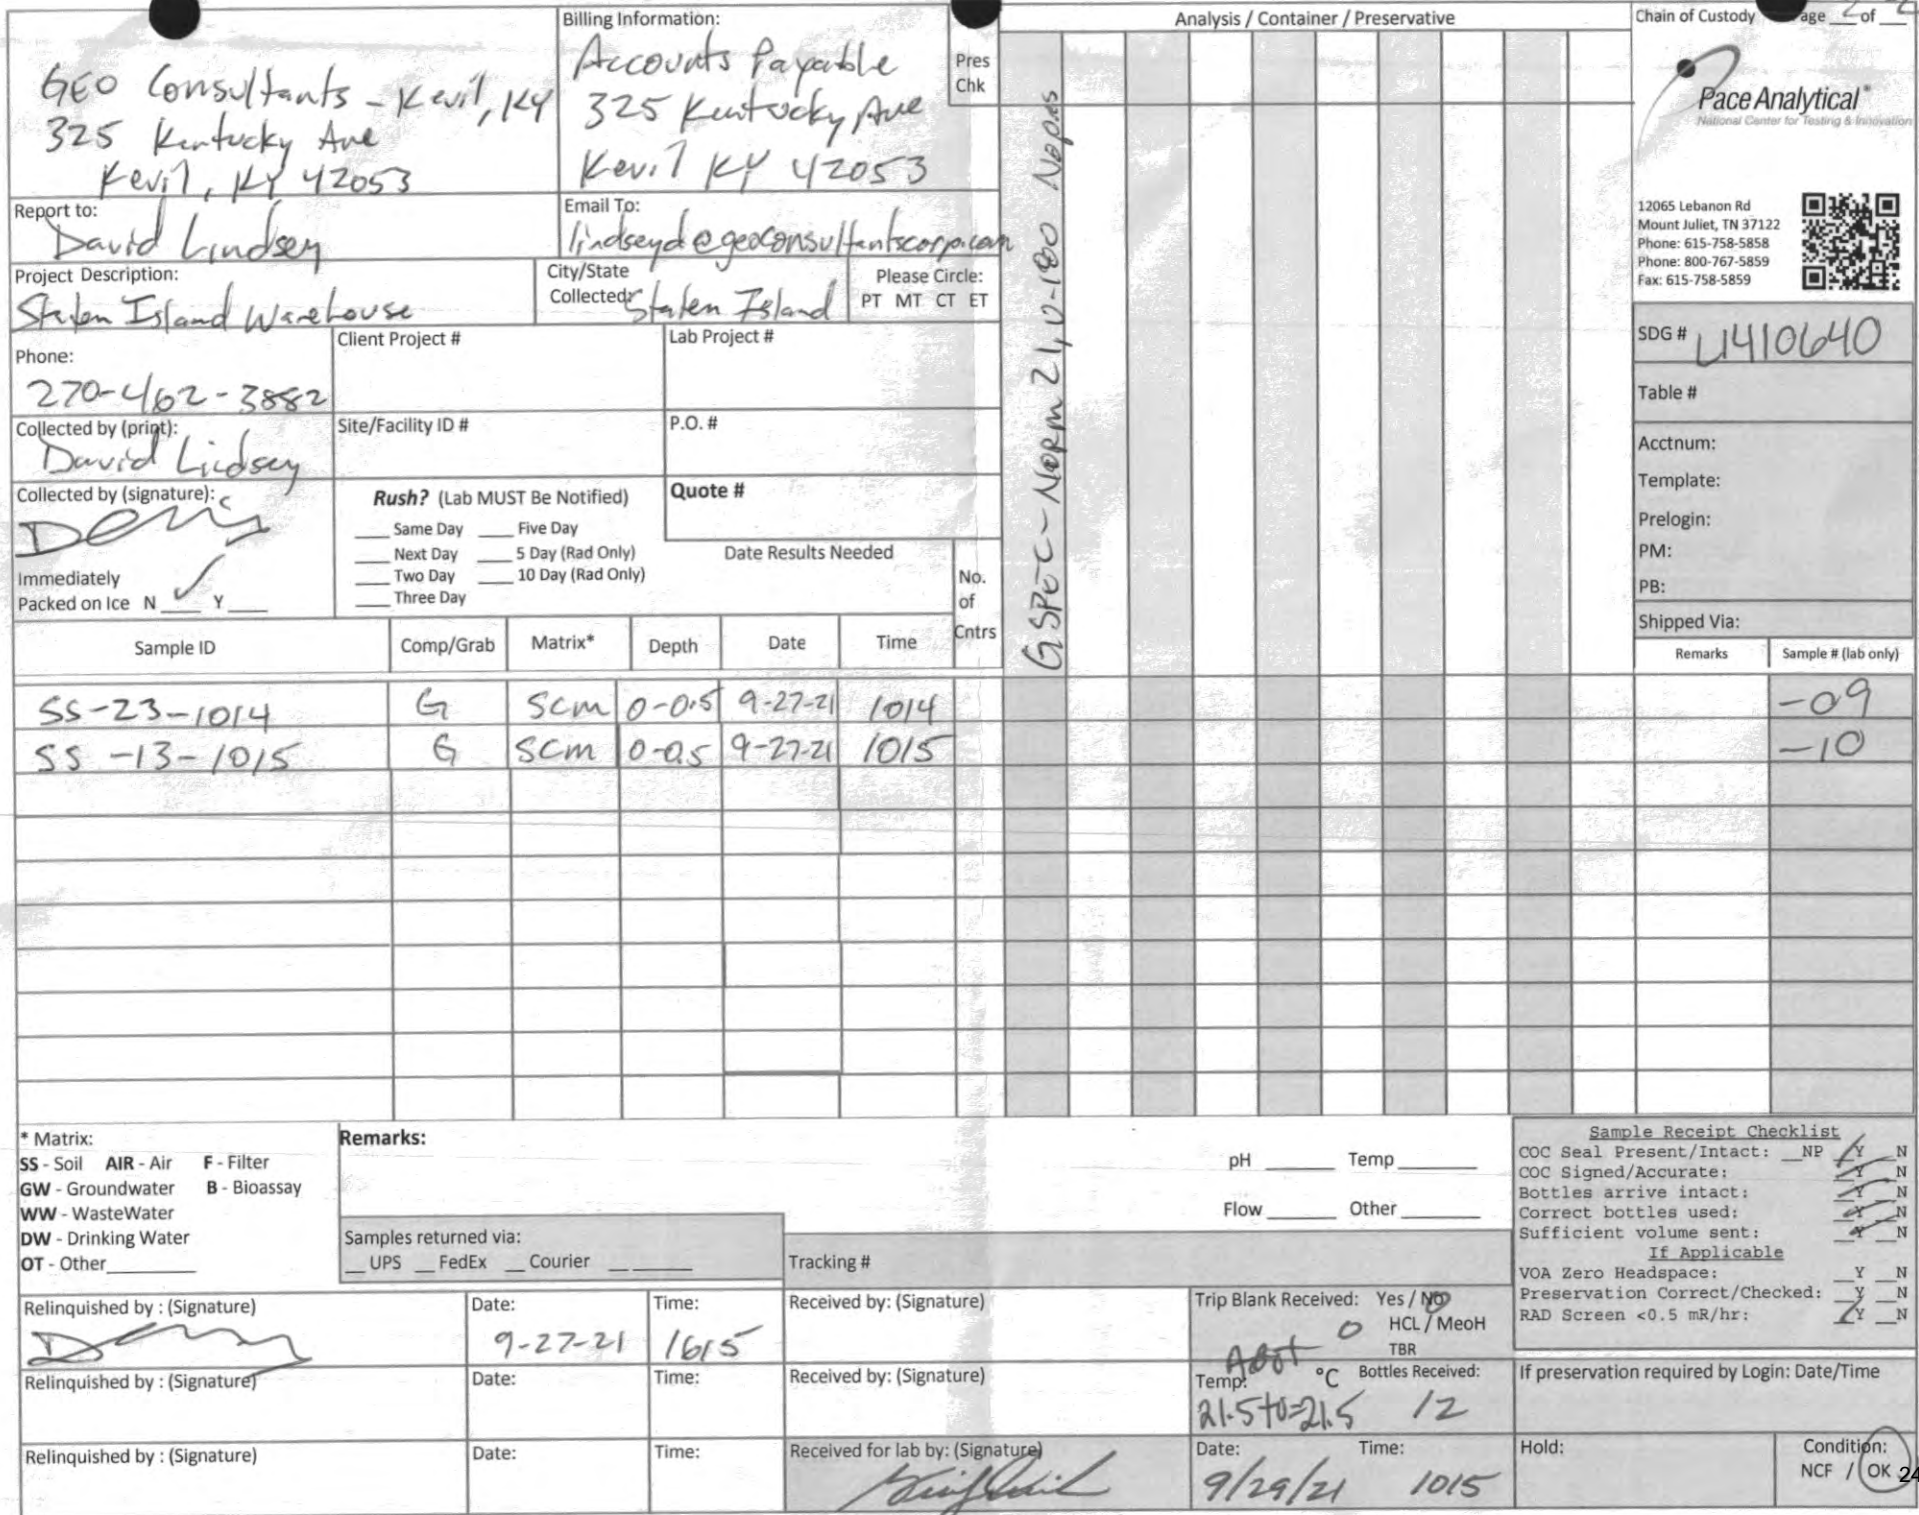 Billing Information:
Analysis / Container / Preservative
Chain of Custody age 2 of 2
GEO Consultants - Kevil, KY
325 Kentucky Ave
Kevil, KY 42053
Accounts Payable
325 Kentucky Ave
Kevil KY 42053
Pres
Chk
Pace Analytical®
National Center for Testing & Innovation
12065 Lebanon Rd
Mount Juliet, TN 37122
Phone: 615-758-5858
Phone: 800-767-5859
Fax: 615-758-5859
Report to:
David Lindsey
Email To:
lindseyd@geoconsultantscorp.com
Project Description:
Staten Island Warehouse
City/State
Collected: Staten Island
Please Circle:
PT MT CT ET
Phone:
270-462-3882
Client Project #
Lab Project #
Collected by (print):
David Lindsey
Site/Facility ID #
P.O. #
Collected by (signature):
Rush? (Lab MUST Be Notified)
Same Day Five Day
Next Day 5 Day (Rad Only)
Two Day 10 Day (Rad Only)
Three Day
Quote #
Date Results Needed
Immediately
Packed on Ice N ✓ Y
No.
of
Cntrs
GSPEC-NORM 21,0-180 Nopres
SDG # L1410640
Table #
Acctnum:
Template:
Prelogin:
PM:
PB:
Shipped Via:
Sample ID Comp/Grab Matrix* Depth Date Time Remarks Sample # (lab only)
SS-23-1014 G SCM 0-0.5 9-27-21 1014 -09
SS-13-1015 G SCM 0-0.5 9-27-21 1015 -10
* Matrix:
SS - Soil AIR - Air F - Filter
GW - Groundwater B - Bioassay
WW - WasteWater
DW - Drinking Water
OT - Other
Remarks:
pH Temp
Flow Other
Samples returned via:
UPS FedEx Courier
Tracking #
Sample Receipt Checklist
COC Seal Present/Intact: NP Y N
COC Signed/Accurate: Y N
Bottles arrive intact: Y N
Correct bottles used: Y N
Sufficient volume sent: Y N
If Applicable
VOA Zero Headspace: Y N
Preservation Correct/Checked: Y N
RAD Screen <0.5 mR/hr: Y N
Relinquished by : (Signature)
Date:
9-27-21
Time:
1615
Received by: (Signature)
Trip Blank Received: Yes / No
0 HCL / MeoH
TBR
Relinquished by : (Signature)
Date:
Time:
Received by: (Signature)
Temp: °C
21.5+0=21.5
Bottles Received:
12
If preservation required by Login: Date/Time
Relinquished by : (Signature)
Date:
Time:
Received for lab by: (Signature)
Date:
9/29/21
Time:
1015
Hold:
Condition:
NCF / OK
24